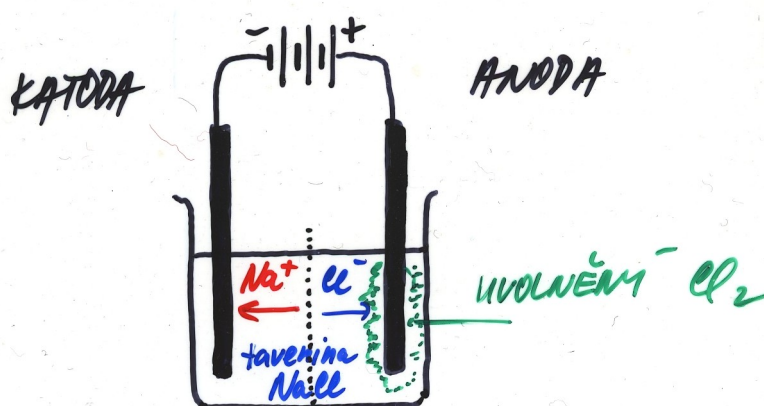 - +
KATODA
ANODA
Na⁺ Cl⁻
UVOLNĚNÝ Cl₂
tavenina
NaCl